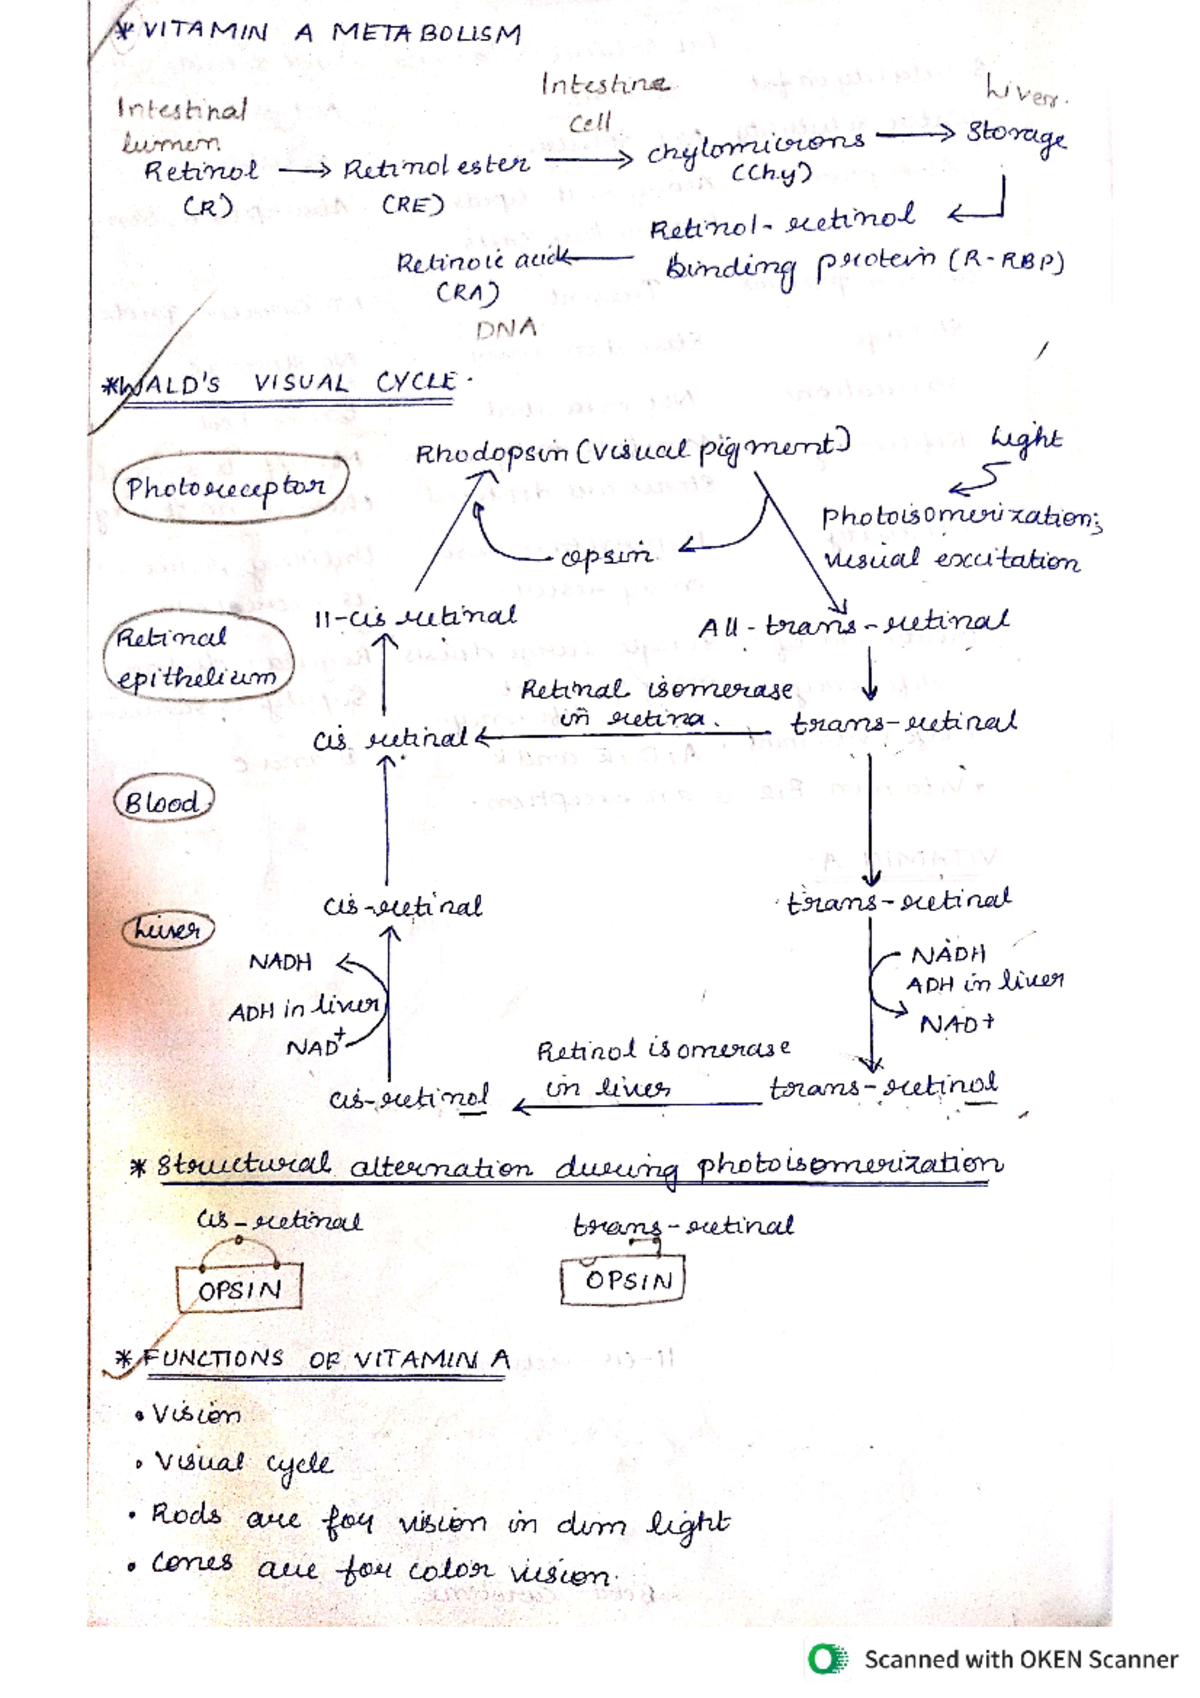 * VITAMIN A METABOLISM
Intestinal lumen
Intestine cell
Liver.
Retinol (R) → Retinol ester (RE) → chylomicrons (Chy) → Storage
Retinol-retinol binding protein (R-RBP)
Retinoic acid (RA)
DNA
* WALD'S VISUAL CYCLE.
Light
Rhodopsin (visual pigment)
Photoreceptor
photoisomerization;
visual excitation
opsin
11-cis retinal
All-trans-retinal
Retinal
epithelium
Retinal isomerase
in retina.
trans-retinal
cis retinal
Blood
cis-retinal
trans-retinal
Liver
NADH
ADH in liver
NAD+
NADH
ADH in liver
NAD+
Retinol isomerase
in liver
cis-retinol
trans-retinol
* Structural alternation during photoisomerization
cis-retinal
trans-retinal
OPSIN
OPSIN
* FUNCTIONS OF VITAMIN A
• Vision
• Visual cycle
• Rods are for vision in dim light
• Cones are for color vision.
Scanned with OKEN Scanner